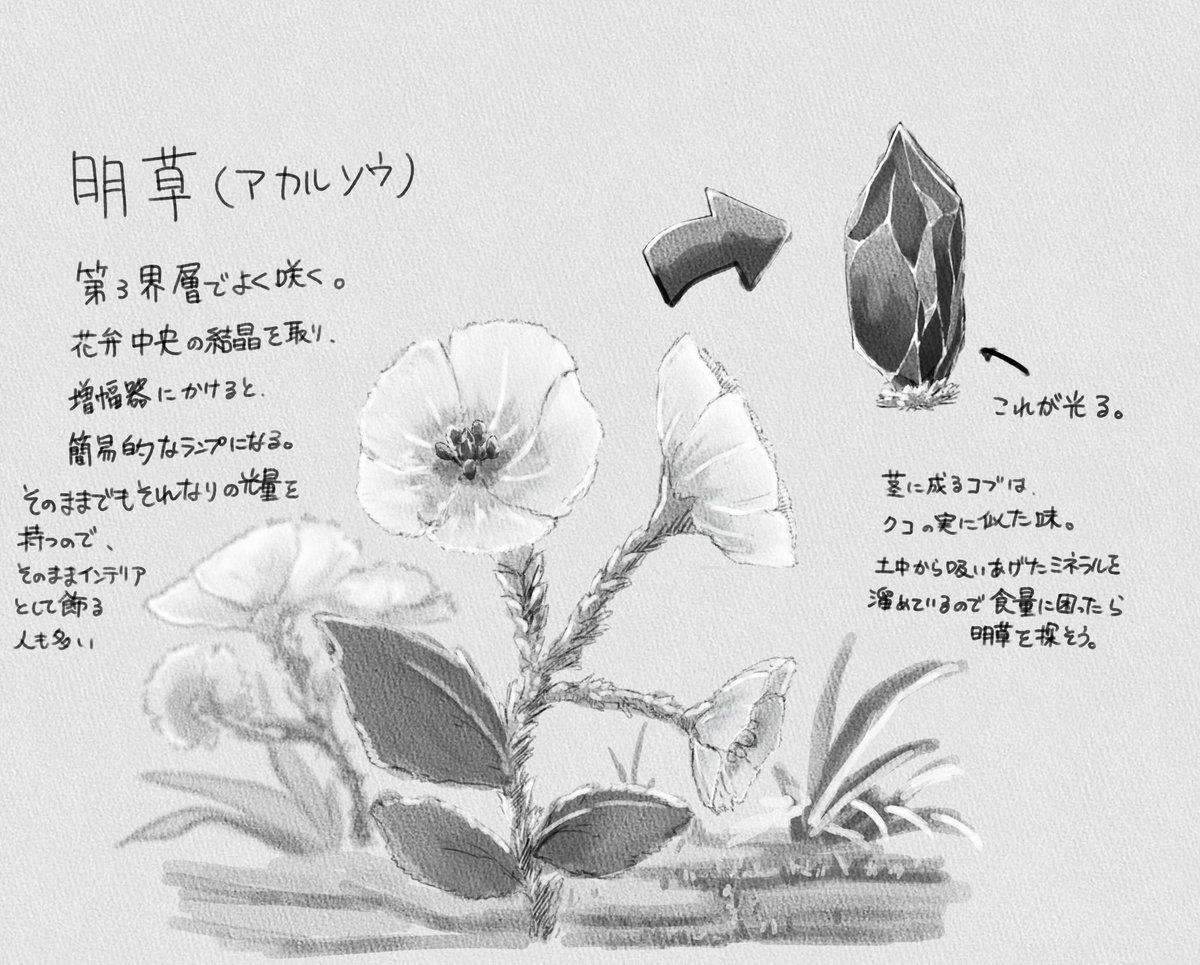 明草(アカルソウ)
第3界層でよく咲く。
花弁中央の結晶を取り、
増幅器にかけると、
簡易的なランプになる。
そのままでもそれなりの光量を
持つので、
そのままインテリア
として飾る
人も多い
これが光る。
茎に成るコブは、
クコの実に似た味。
土中から吸いあげたミネラルを
溜めているので食量に困ったら
明草を探そう。